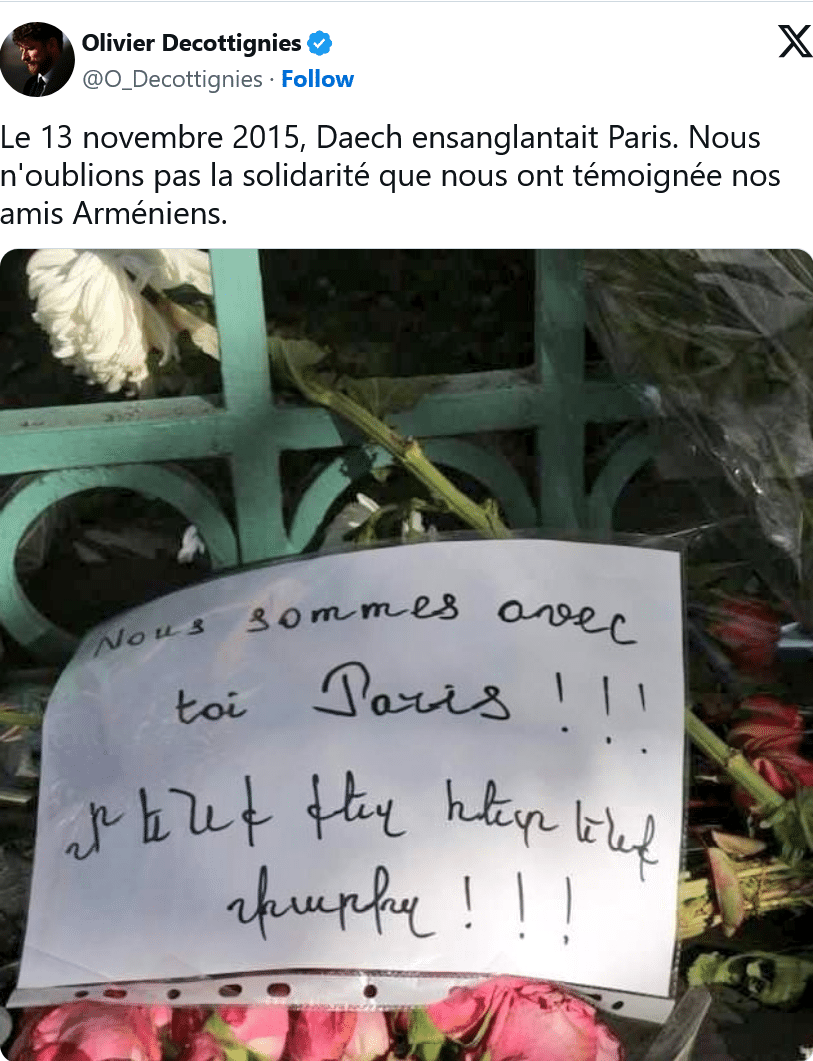 Olivier Decottignies
@O_Decottignies · Follow
Le 13 novembre 2015, Daech ensanglantait Paris. Nous
n'oublions pas la solidarité que nous ont témoignée nos
amis Arméniens.
Nous sommes avec
toi Paris !!!
Մենք քեզ հետ ենք
Փարիզ !!!